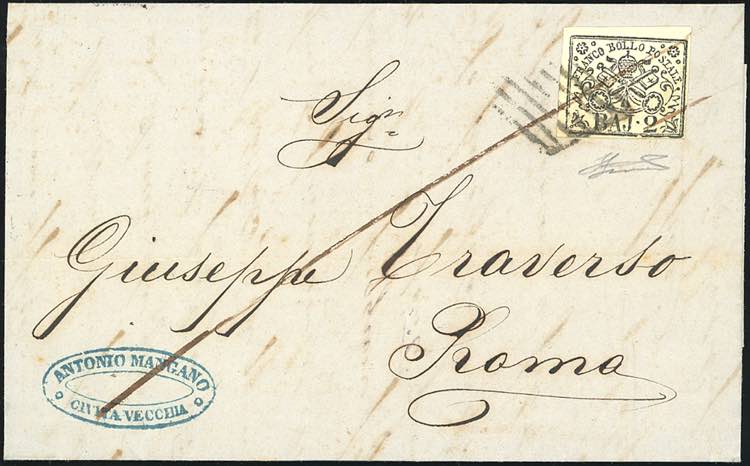 FRANCO BOLLO POSTALE
BAJ. 2
Sigr
Giuseppe Traverso
Roma
ANTONIO MANGANO
CIVITA VECCHIA